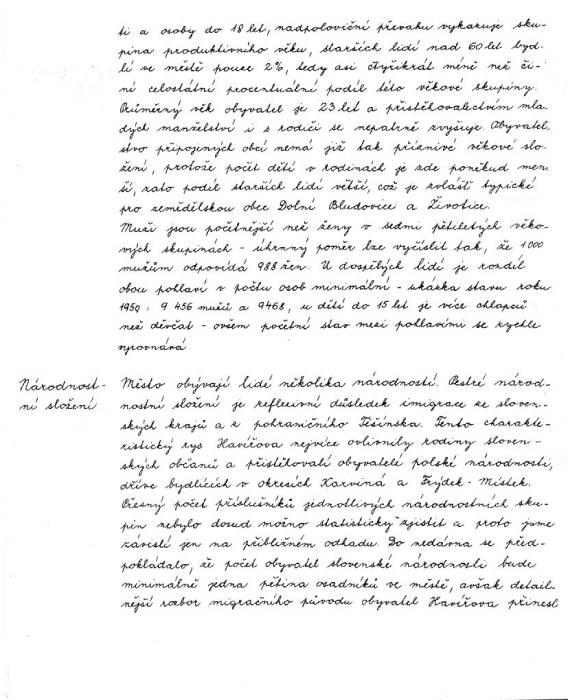 ti a osoby do 18 let, nadpoloviční převahu vykazuje sku-
pina produktivního věku, starších lidí nad 60 let byd-
lí ve městě pouze 2%, tedy asi čtyřikrát méně než či-
ní celostátní procentuální podíl této věkové skupiny.
Průměrný věk obyvatel je 23 let a přistěhovalectvím mla-
dých manželství i s rodiči se nepatrně zvyšuje. Obyvatel-
stvo připojených obcí nemá již tak příznivé věkové slo-
žení, protože počet dětí v rodinách je zde poněkud men-
ší, zato podíl starších lidí větší, což je zvlášť typické
pro zemědělskou obce Dolní Bludovice a Životice.
Muži jsou početnější než ženy v sedmi pětiletých věko-
vých skupinách - úhrnný poměr lze vyčíslit tak, že 1000
mužům odpovídá 988 žen. U dospělých lidí je rozdíl
obou pohlaví v počtu osob minimální - ukázka stavu roku
1959: 9 456 mužů a 9468, u dětí do 15 let je více chlapců
než děvčat - ovšem početní stav mezi pohlavími se rychle
vyrovnává
Národnost-
ní složení
Město obývají lidé několika národností. Pestré národ-
nostní složení je reflexivní důsledek imigrace ze sloven-
ských krajů a z pohraničního Těšínska. Tento charakte-
ristický rys Havířova nejvíce ovlivnily rodiny sloven-
ských občanů a přistěhovalí obyvatelé polské národnosti,
dříve bydlících v okresích Karviná a Frýdek-Místek.
Přesný počet příslušníků jednotlivých národnostních sku-
pin nebylo dosud možno statisticky zjistit a proto jsme
závislí jen na přibližném odhadu. Do nedávna se před-
pokládalo, že počet obyvatel slovenské národnosti bude
minimálně jedna pětina osadníků ve městě, avšak detail-
nější rozbor migračního původu obyvatel Havířova přinesl